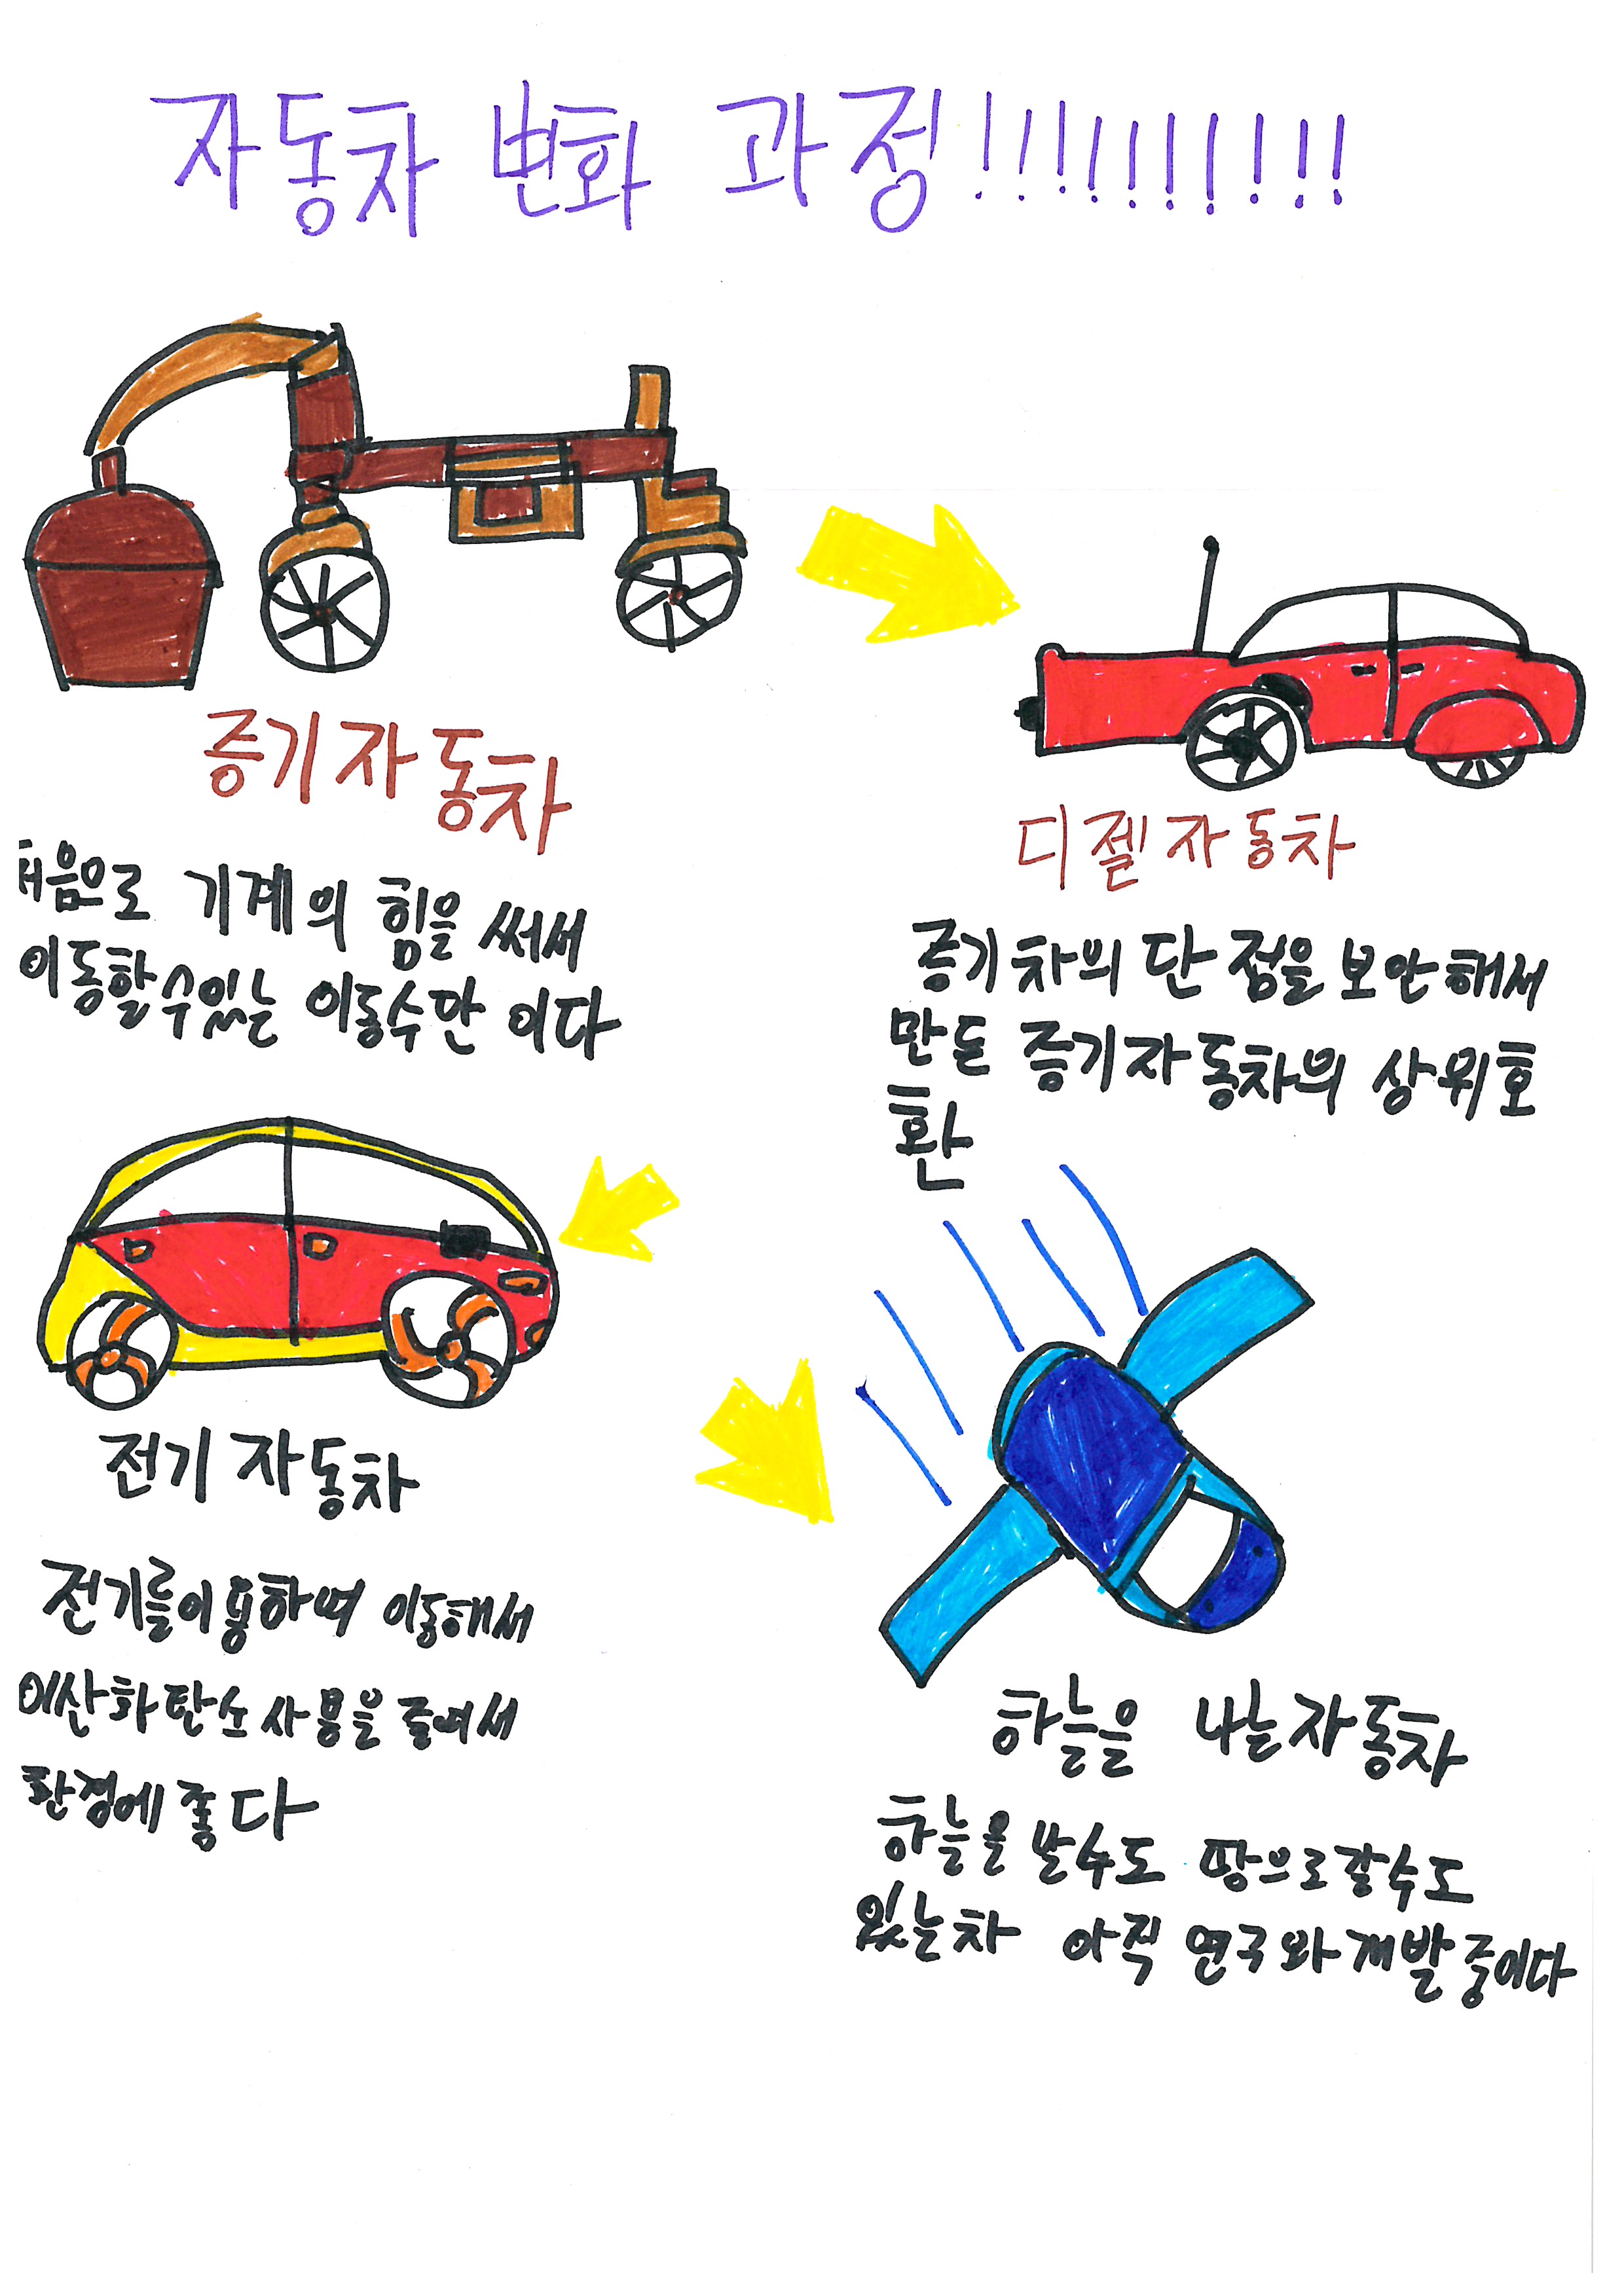 자동차 변화 과정!!!!!!!!!!
증기자동차
처음으로 기계의 힘을 써서
이동할수있는 이동수단 이다
디젤자동차
증기차의 단점을 보안해서
만든 증기자동차의 상위호
환
전기 자동차
전기를이용하며 이동해서
이산화탄소사용을 줄여서
환경에좋다
하늘을 나는자동차
하늘을 날수도 땅으로갈수도
있는차 아직 연구와개발중이다